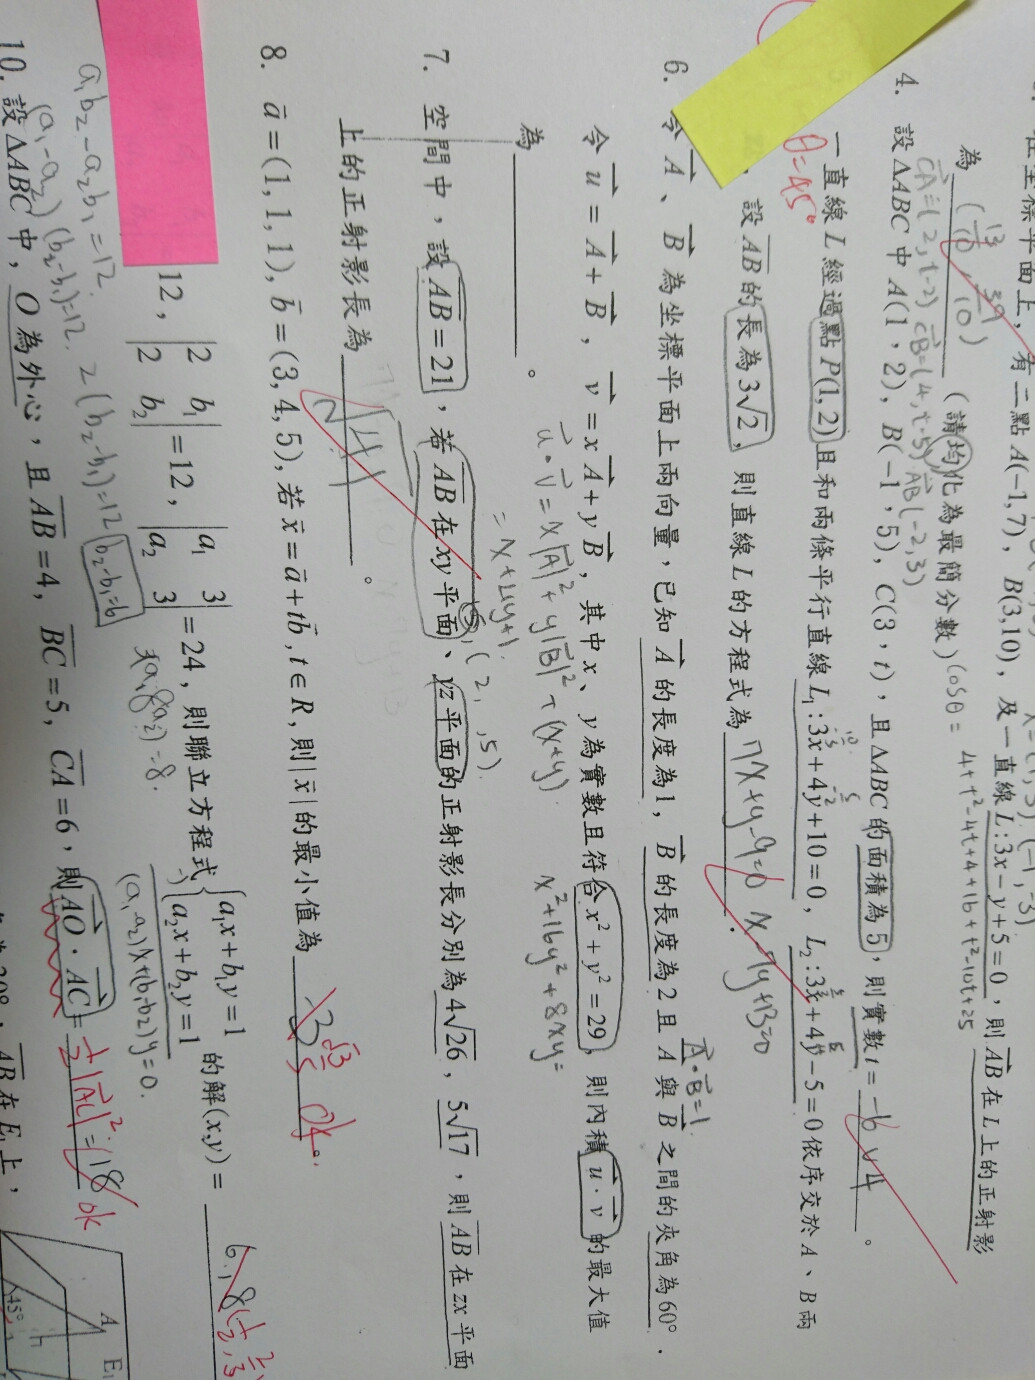 坐標平面上，有二點A(-1,7)，B(3,10)，及一直線L:3x-y+5=0，則AB在L上的正射影
為 (13/10, 39/10) (請均化為最簡分數)
cosθ=
4+t²-4t+4+16+t²-10t+25
CA=(2,t-2) CB=(4,t-5) AB(-2,3)
4. 設△ABC中A(1，2)，B(-1，5)，C(3，t)，且△ABC的面積為5，則實數t= -6 ∨ 4 。
一直線L經過點P(1,2)且和兩條平行直線L₁:3x+4y+10=0，L₂:3x+4y-5=0依序交於A、B兩
θ=45°
設AB的長為3√2，則直線L的方程式為 7x+y-9=0 x-7y+13=0 .
6. 令A、B為坐標平面上兩向量，已知A的長度為1，B的長度為2且A與B之間的夾角為60°．
A·B=1
令u=A+B，v=xA+yB，其中x、y為實數且符合x²+y²=29，則內積u·v的最大值
為 。
u·v=x|A|²+y|B|²+(x+y)
x²+16y²+8xy=
=x+4y+1.
(2, ,5).
7. 空間中，設AB=21，若AB在xy平面、yz平面的正射影長分別為4√26，5√17，則AB在zx平面
上的正射影長為 。
8. a=(1,1,1)，b=(3,4,5)，若x=a+tb，t∈R，則|x|的最小值為 √3/5 ok.
12，|2 b₁ 2 b₂|=12，|a₁ 3 a₂ 3|=24，則聯立方程式{a₁x+b₁y=1 a₂x+b₂y=1 的解(x,y)= 6,8
a₁b₂-a₂b₁=12.
2(b₂-b₁)=12 b₂-b₁=6
(a₁-a₂)(b₂-b₁)=12.
(a₁-a₂)x+(b₁-b₂)y=0.
10. 設△ABC中，O為外心，且AB=4，BC=5，CA=6，則AO·AC= 1/2|AC|²=18 ok
A E₁
45°